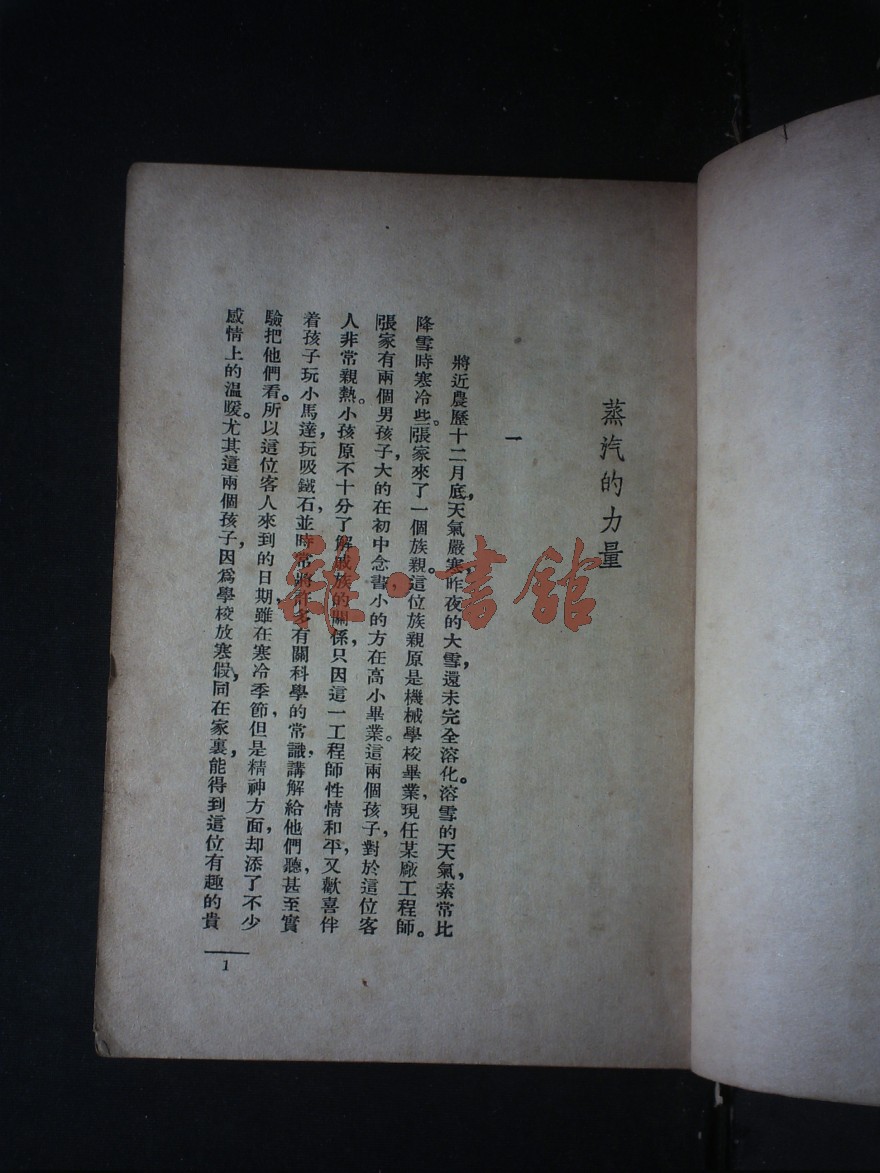 蒸汽的力量
一
將近農歷十二月底，天氣嚴寒，昨夜的大雪，還未完全溶化。溶雪的天氣，素常比
降雪時寒冷些。張家來了一個族親。這位族親原是機械學校畢業，現任某廠工程師。
張家有兩個男孩子，大的在初中念書，小的方在高小畢業。這兩個孩子，對於這位客
人非常親熱。小孩原不十分了解戚族的關係，只因這一工程師性情和平，又歡喜伴
着孩子玩小馬達，玩吸鐵石，並時常將許多有關科學的常識，講解給他們聽，甚至實
驗把他們看。所以這位客人來到的日期，雖在寒冷季節，但是精神方面，却添了不少
感情上的溫暖。尤其這兩個孩子，因爲學校放寒假，同在家裏，能得到這位有趣的貴
1
雜·書館